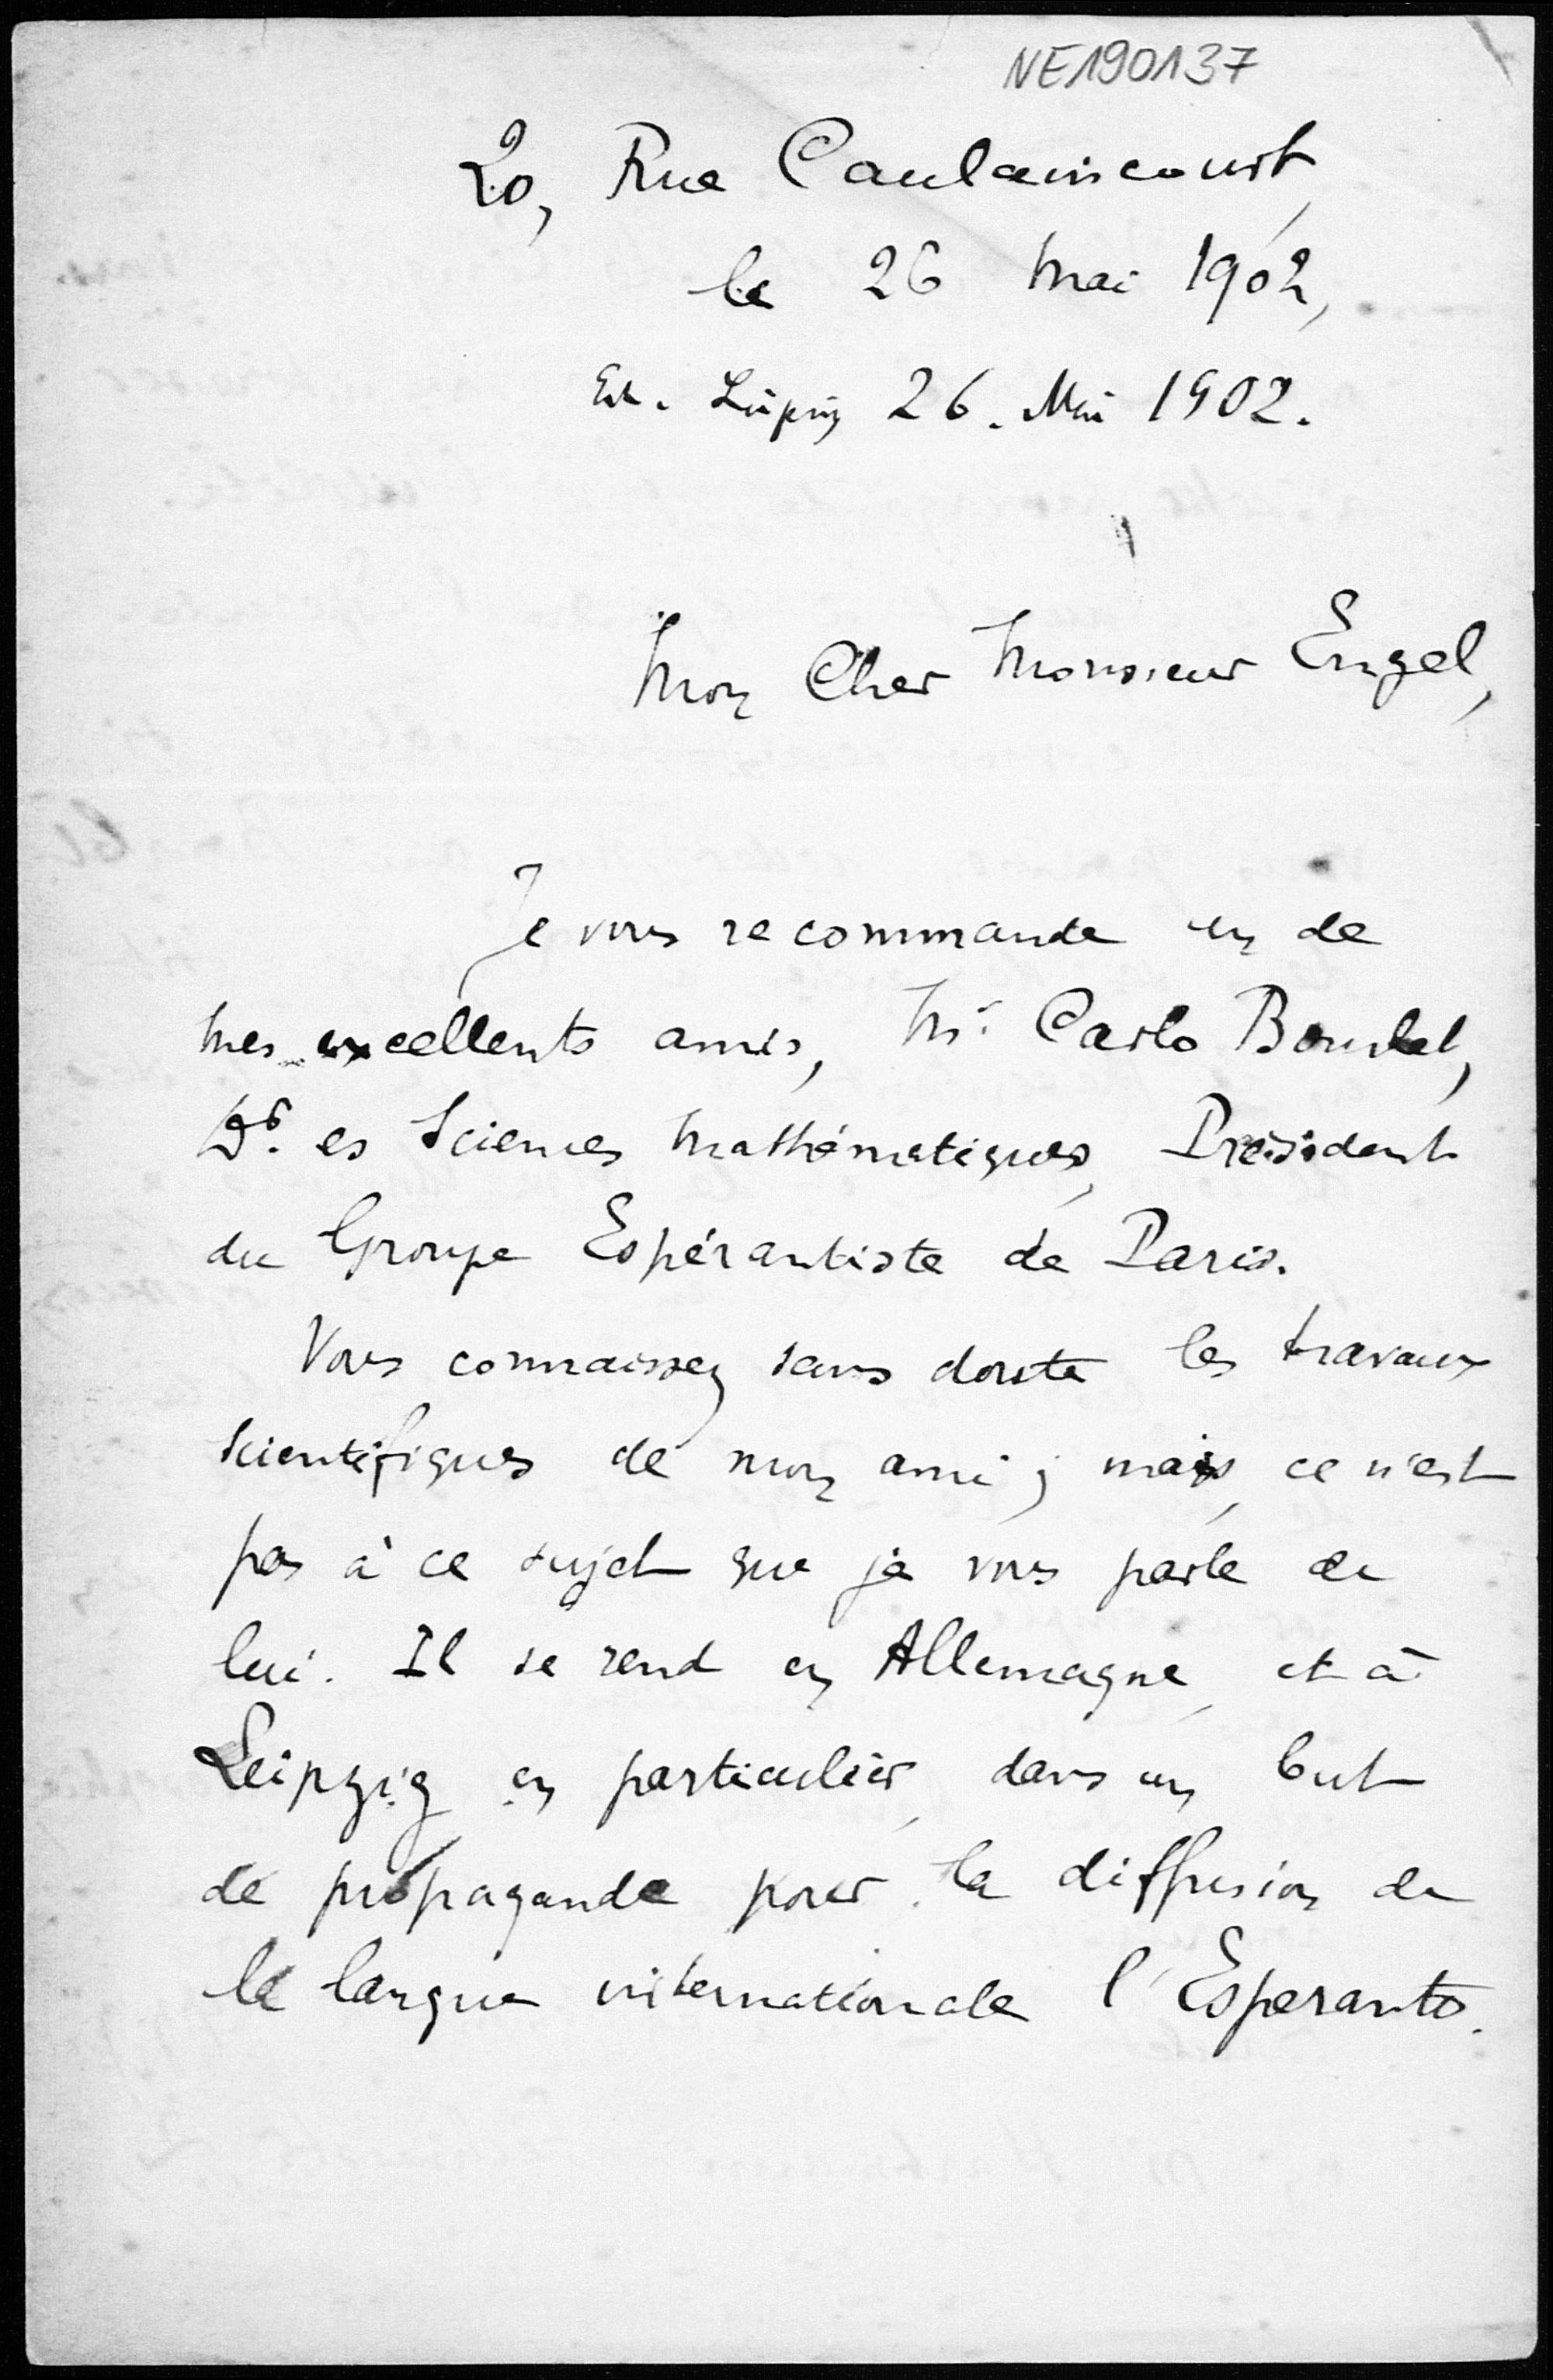 NE190137
20, Rue Caulaincourt,
le 26 Mai 1902,
Erh. Leipzig 26. Mai 1902.
Mon Cher Monsieur Engel,
Je vous recommande un de
mes excellents amis, Mr. Carlo Bourlet,
Dr. es Sciences Mathématiques, Président
du Groupe Espérantiste de Paris.
Vous connaissez sans doute les travaux
scientifiques de mon ami ; mais, ce n'est
pas à ce sujet que je vous parle de
lui. Il se rend en Allemagne, et à
Leipzig en particulier, dans un but
de propagande pour la diffusion de
la langue internationale l'Esperanto.